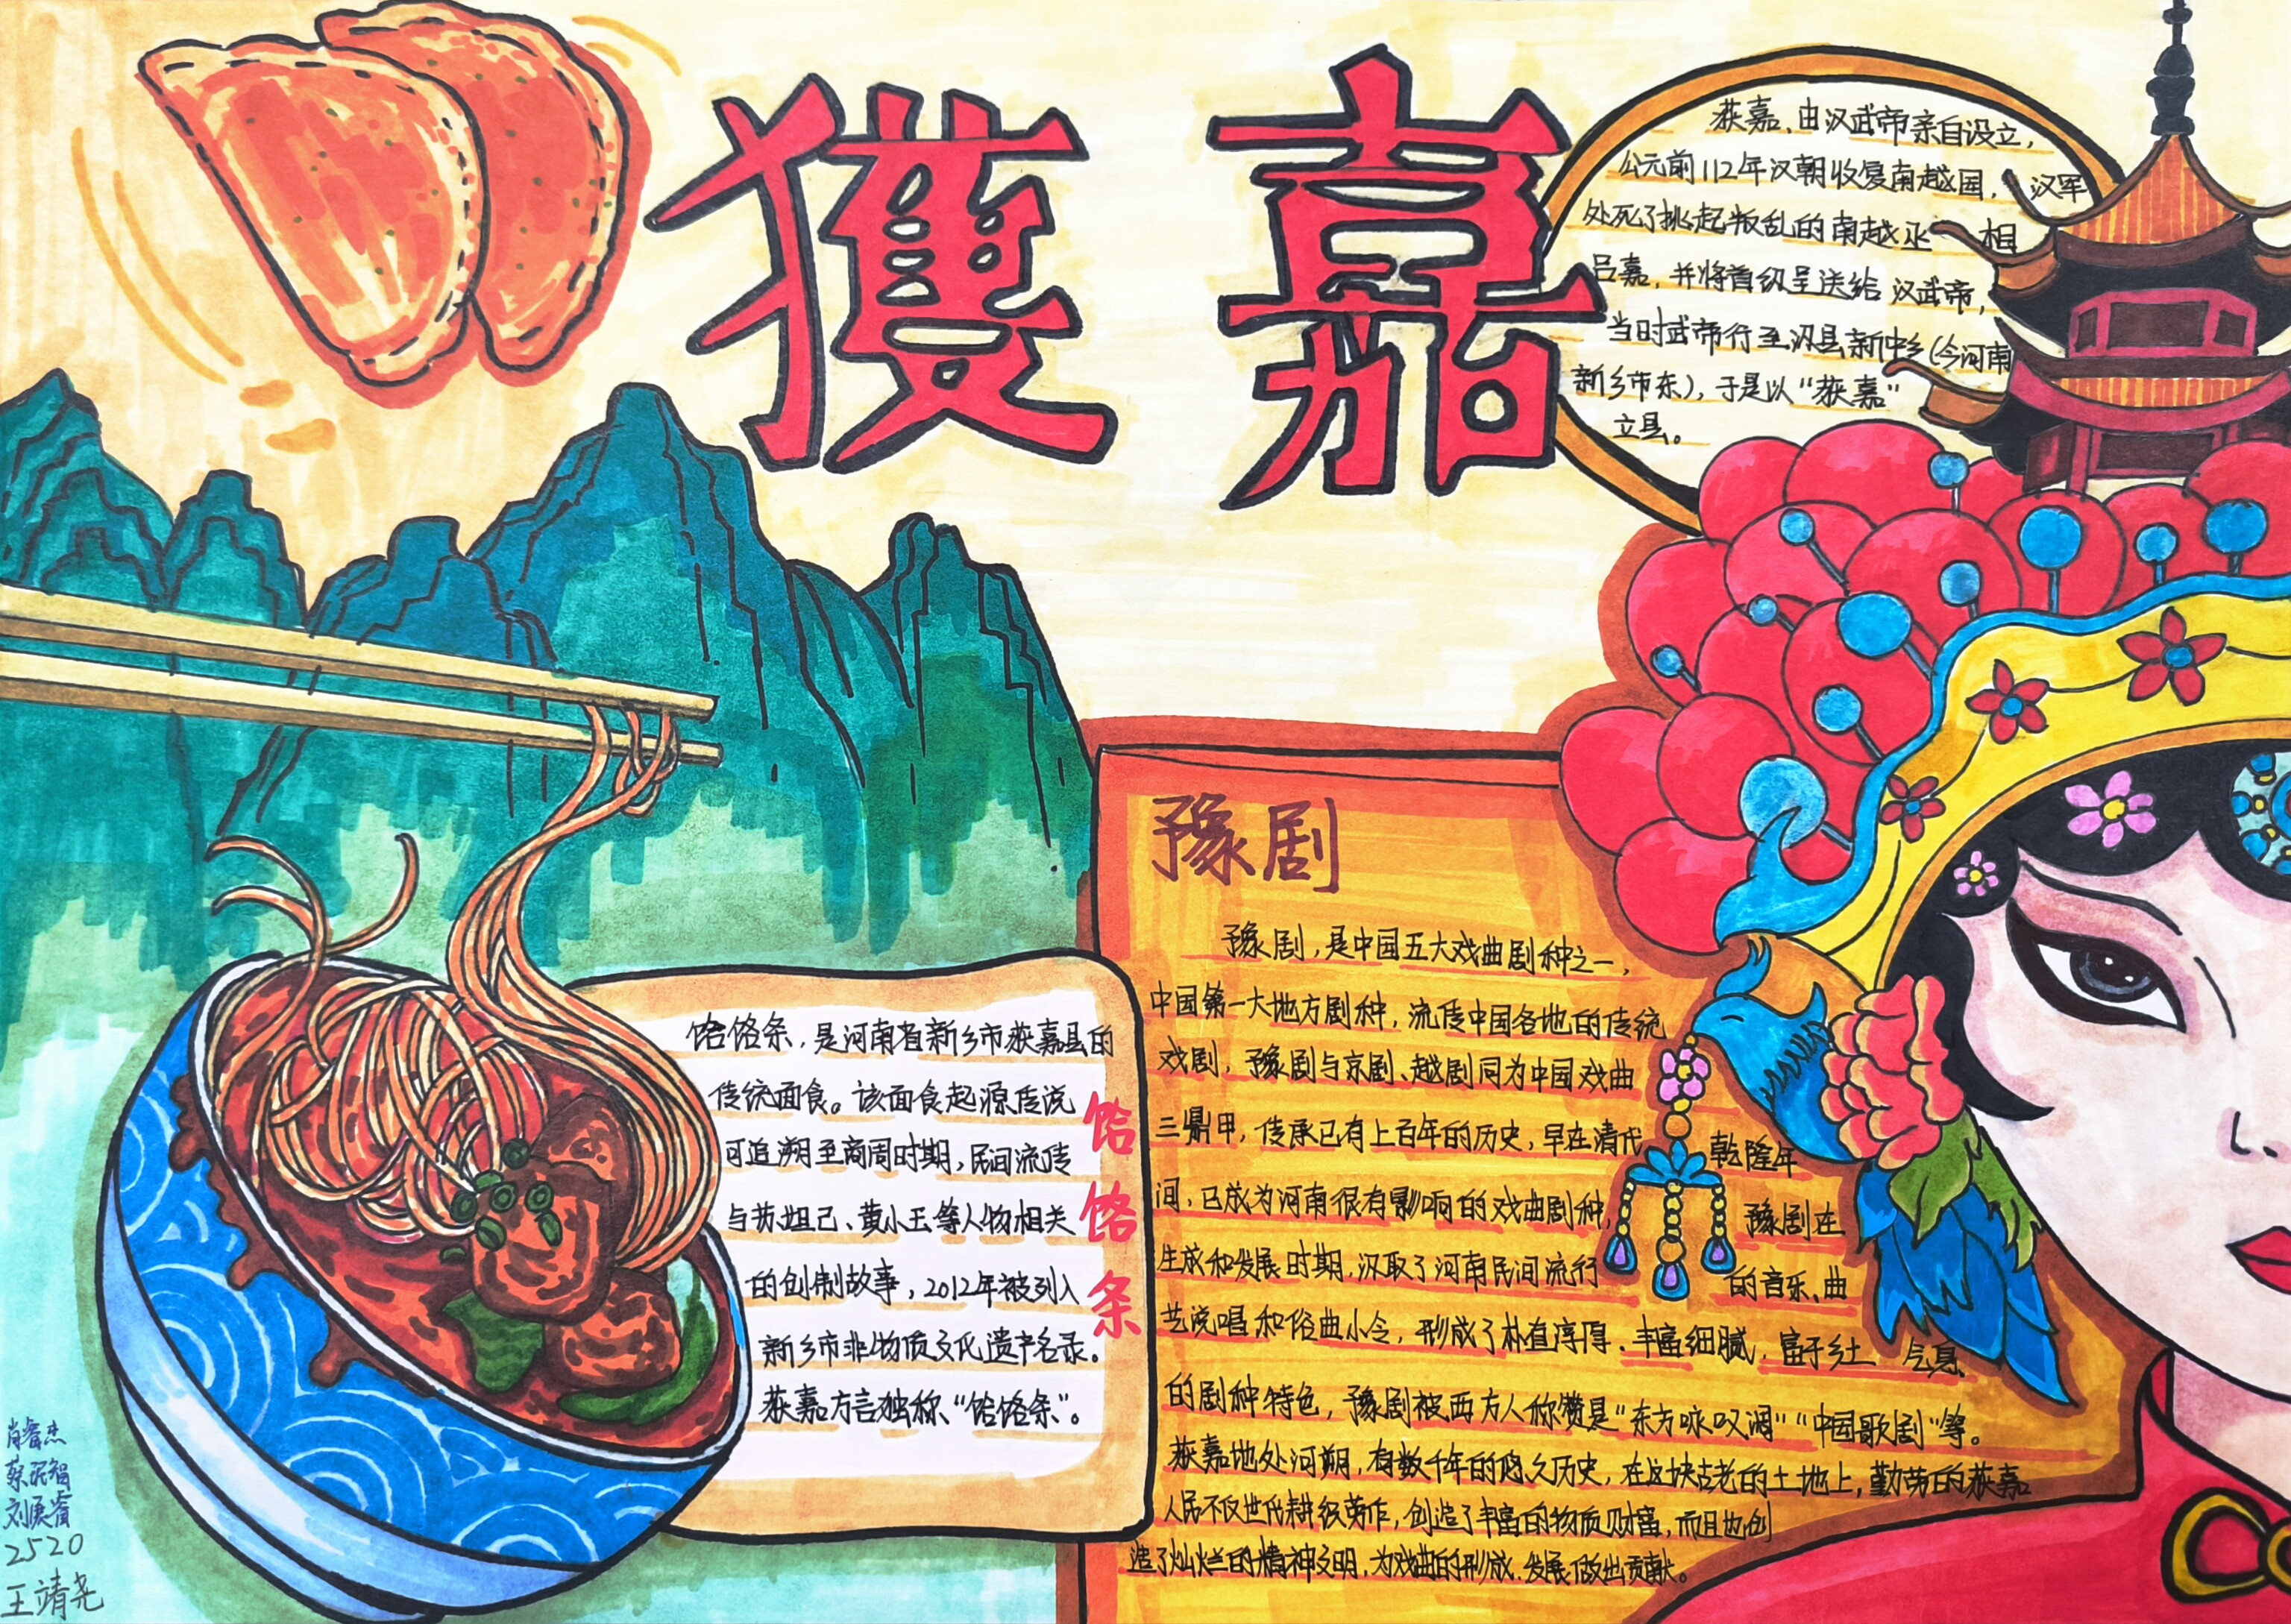 獲嘉
获嘉，由汉武帝亲自设立，
公元前112年汉朝收复南越国，汉军
处死了挑起叛乱的南越丞相
吕嘉，并将首级呈送给汉武帝，
当时武帝行至汲县新中乡(今河南
新乡市东)，于是以“获嘉”
立县。
豫剧
豫剧，是中国五大戏曲剧种之一，
中国第一大地方剧种，流传中国各地的传统
戏剧，豫剧与京剧、越剧同为中国戏曲
三鼎甲，传承已有上百年的历史，早在清代乾隆年
间，已成为河南很有影响的戏曲剧种，豫剧在
生成和发展时期，汲取了河南民间流行的音乐、曲
艺说唱和俗曲小令，形成了朴直淳厚、丰富细腻，富于乡土气息
的剧种特色，豫剧被西方人称赞是“东方咏叹调”“中国歌剧”等。
获嘉地处河朔，有数千年的悠久历史，在这块古老的土地上，勤劳的获嘉
人民不仅世代耕织劳作，创造了丰富的物质财富，而且也创
造了灿烂的精神文明，为戏曲的形成、发展做出贡献。
饸饹条，是河南省新乡市获嘉县的
传统面食。该面食起源传说
可追溯至商周时期，民间流传
与苏妲己、黄小玉等人物相关
的创制故事，2012年被列入
新乡市非物质文化遗产名录。
获嘉方言独称“饸饹条”。
饸饹条
肖睿杰
蔡 智
刘 睿
2520
王靖尧